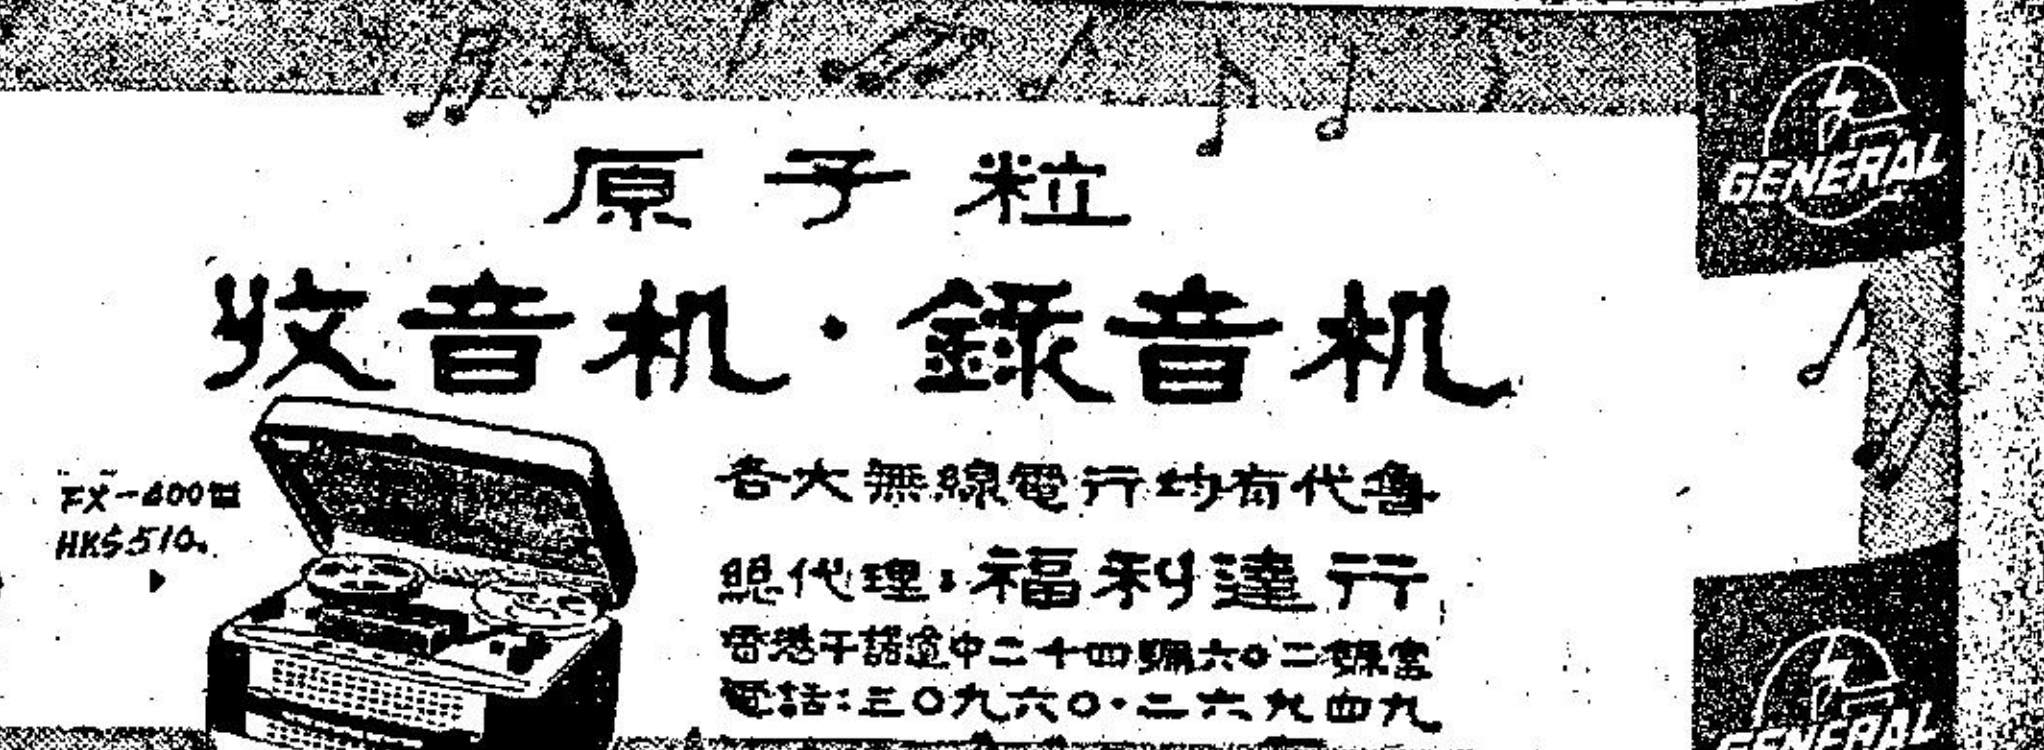 GENERAL
原子粒
收音机·錄音机
FX-400型
HK$510.
各大無線電行均有代售
總代理:福利達行
香港干諾道中二十四號六〇二號室
電話:三〇九六〇·二六九四九
GENERAL